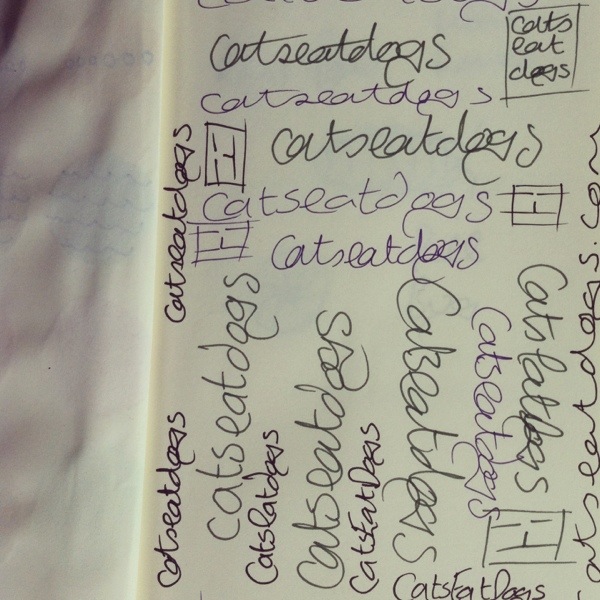 catseatdogs
cats
eat
dogs
catseatdogs
catseatdogs
catseatdogs
catseatdogs
catseatdogs
catseatdogs
catseatdogs
catseatdogs
catseatdogs
catseatdogs
CatsEatDogs
catseatdogs
catseatdogs
CatsEatDogs
catseatdogs.com
CatsEatDogs